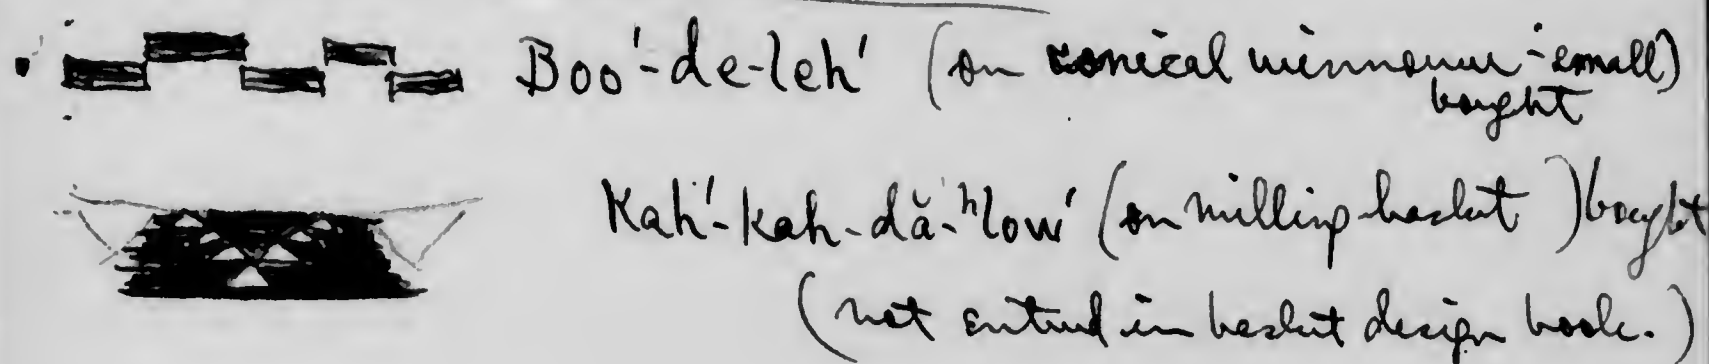 Boo'-de-leh' (on conical winnower - small)
bought
Kah'-kah-dă-ʰlow' (on milling basket) bought
(not entered in basket design book.)